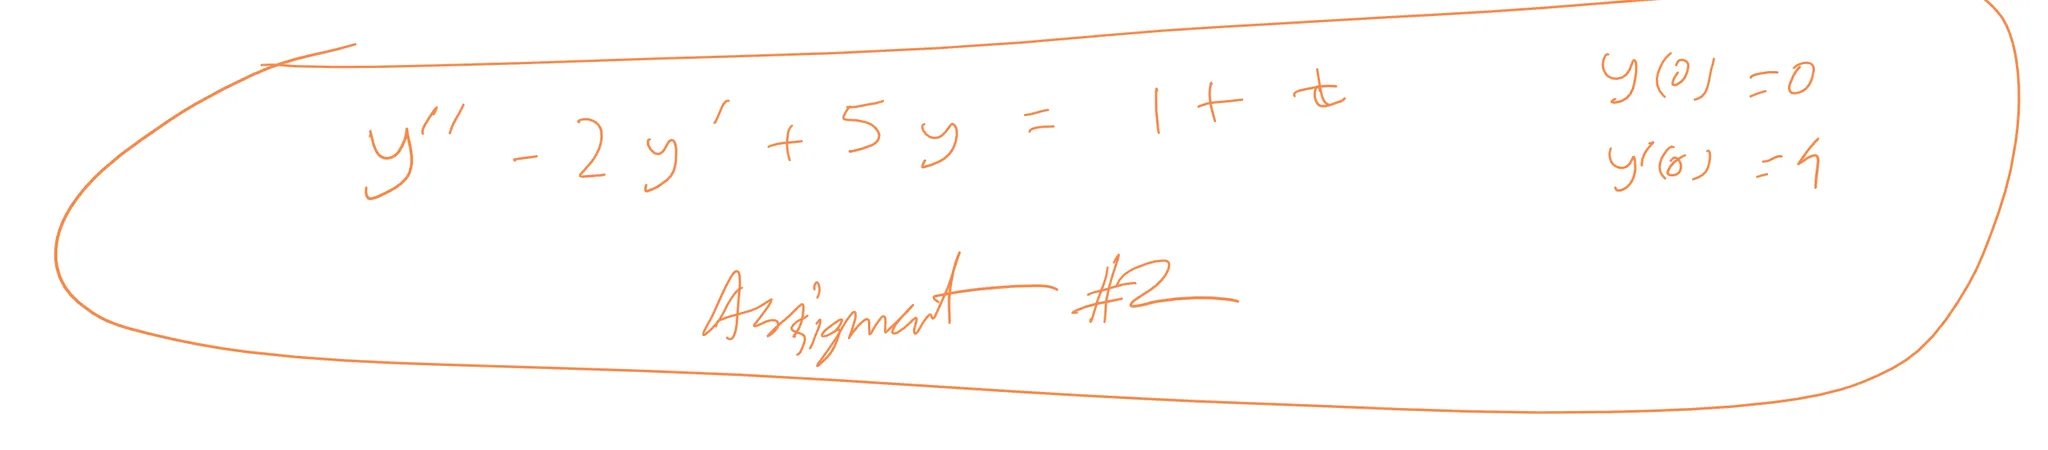 y'' - 2y' + 5y = 1 + t
y(0) = 0
y'(0) = 4
Assignment #2